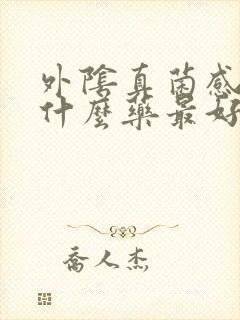 外陰真菌感
什麼藥最好
喬人杰